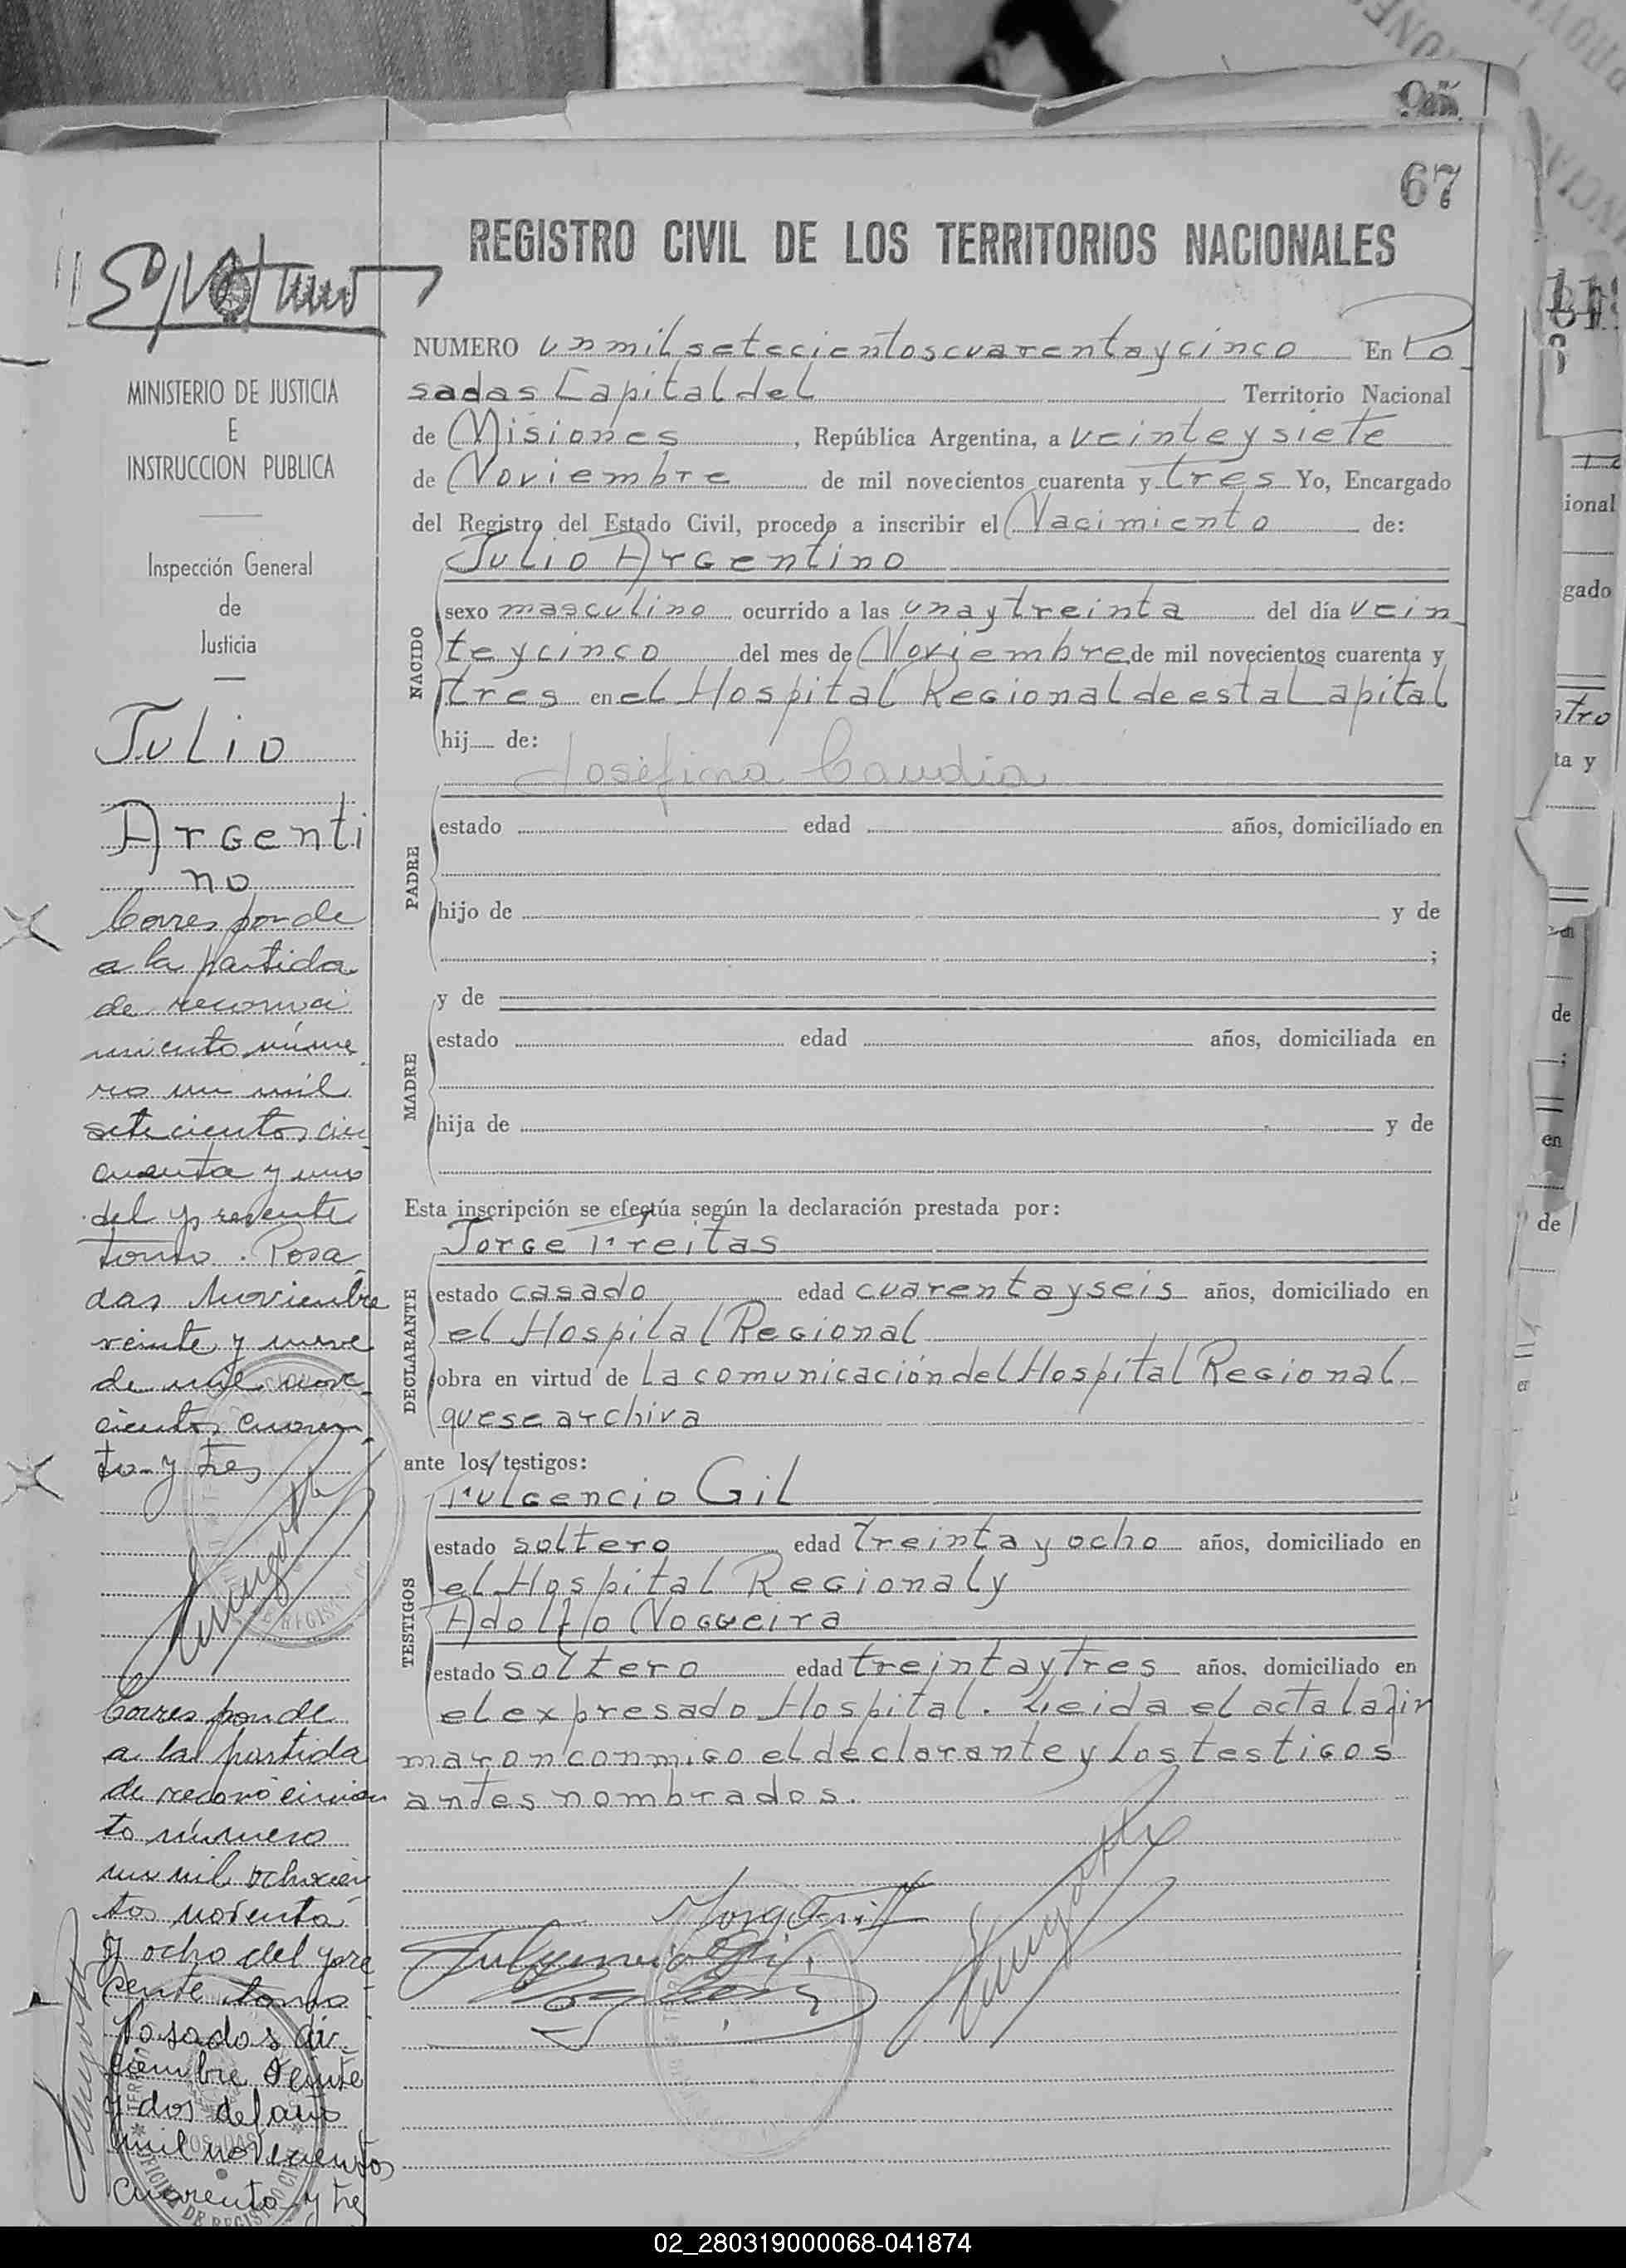 67
REGISTRO CIVIL DE LOS TERRITORIOS NACIONALES
MINISTERIO DE JUSTICIA
E
INSTRUCCION PUBLICA
Inspección General
de
Justicia
Julio
Argenti
no
Corresponde
a la partida
de reconoci
miento núme
ro un mil
setecientos cin
cuenta y uno
del presente
tomo. Posa
das Noviembre
veinte y nueve
de mil nove
cientos cuaren
ta y tres
Corresponde
a la partida
de reconocimien
to número
un mil ochocien
tos noventa
y ocho del pre
sente tomo
Posadas di
ciembre veinte
y dos del año
mil novecientos
cuarenta y tre
NUMERO un mil setecientos cuarenta y cinco En Po
sadas Capital del Territorio Nacional
de Misiones, República Argentina, a veinte y siete
de Noviembre de mil novecientos cuarenta y tres Yo, Encargado
del Registro del Estado Civil, procedo a inscribir el Nacimiento de:
Julio Argentino
NACIDO
sexo masculino ocurrido a las una y treinta del día vein
te y cinco del mes de Noviembre de mil novecientos cuarenta y
tres en el Hospital Regional de esta Capital
hij de:
Josefina Caudia
PADRE
estado edad años, domiciliado en
hijo de y de
;
MADRE
y de
estado edad años, domiciliada en
hija de y de
Esta inscripción se efectúa según la declaración prestada por:
Jorge Freitas
DECLARANTE
estado casado edad cuarenta y seis años, domiciliado en
el Hospital Regional
obra en virtud de la comunicación del Hospital Regional.
que se archiva
ante los testigos:
Fulgencio Gil
TESTIGOS
estado soltero edad treinta y ocho años, domiciliado en
el Hospital Regional y
Adolfo Nogueira
estado soltero edad treinta y tres años, domiciliado en
el expresado Hospital. Leida el acta la fir
maron conmigo el declarante y los testigos
antes nombrados.
02_280319000068-041874